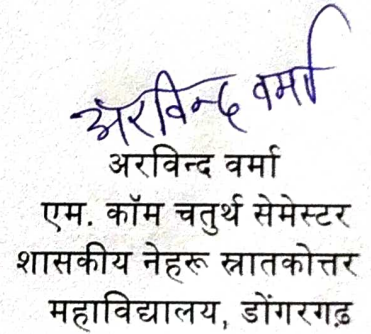 अरविन्द वर्मा
अरविन्द वर्मा
एम. कॉम चतुर्थ सेमेस्टर
शासकीय नेहरू स्नातकोत्तर
महाविद्यालय, डोंगरगढ़